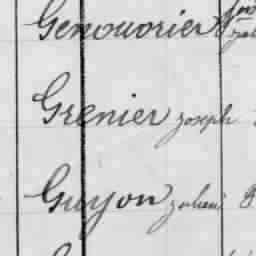 Genouvrier
Grenier joseph
Guyon julien